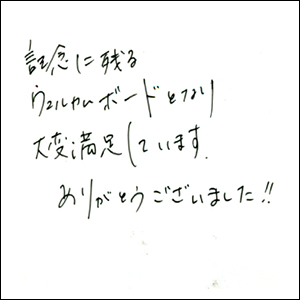 記念に残る
ウェルカムボードとなり
大変満足しています.
ありがとうございました!!